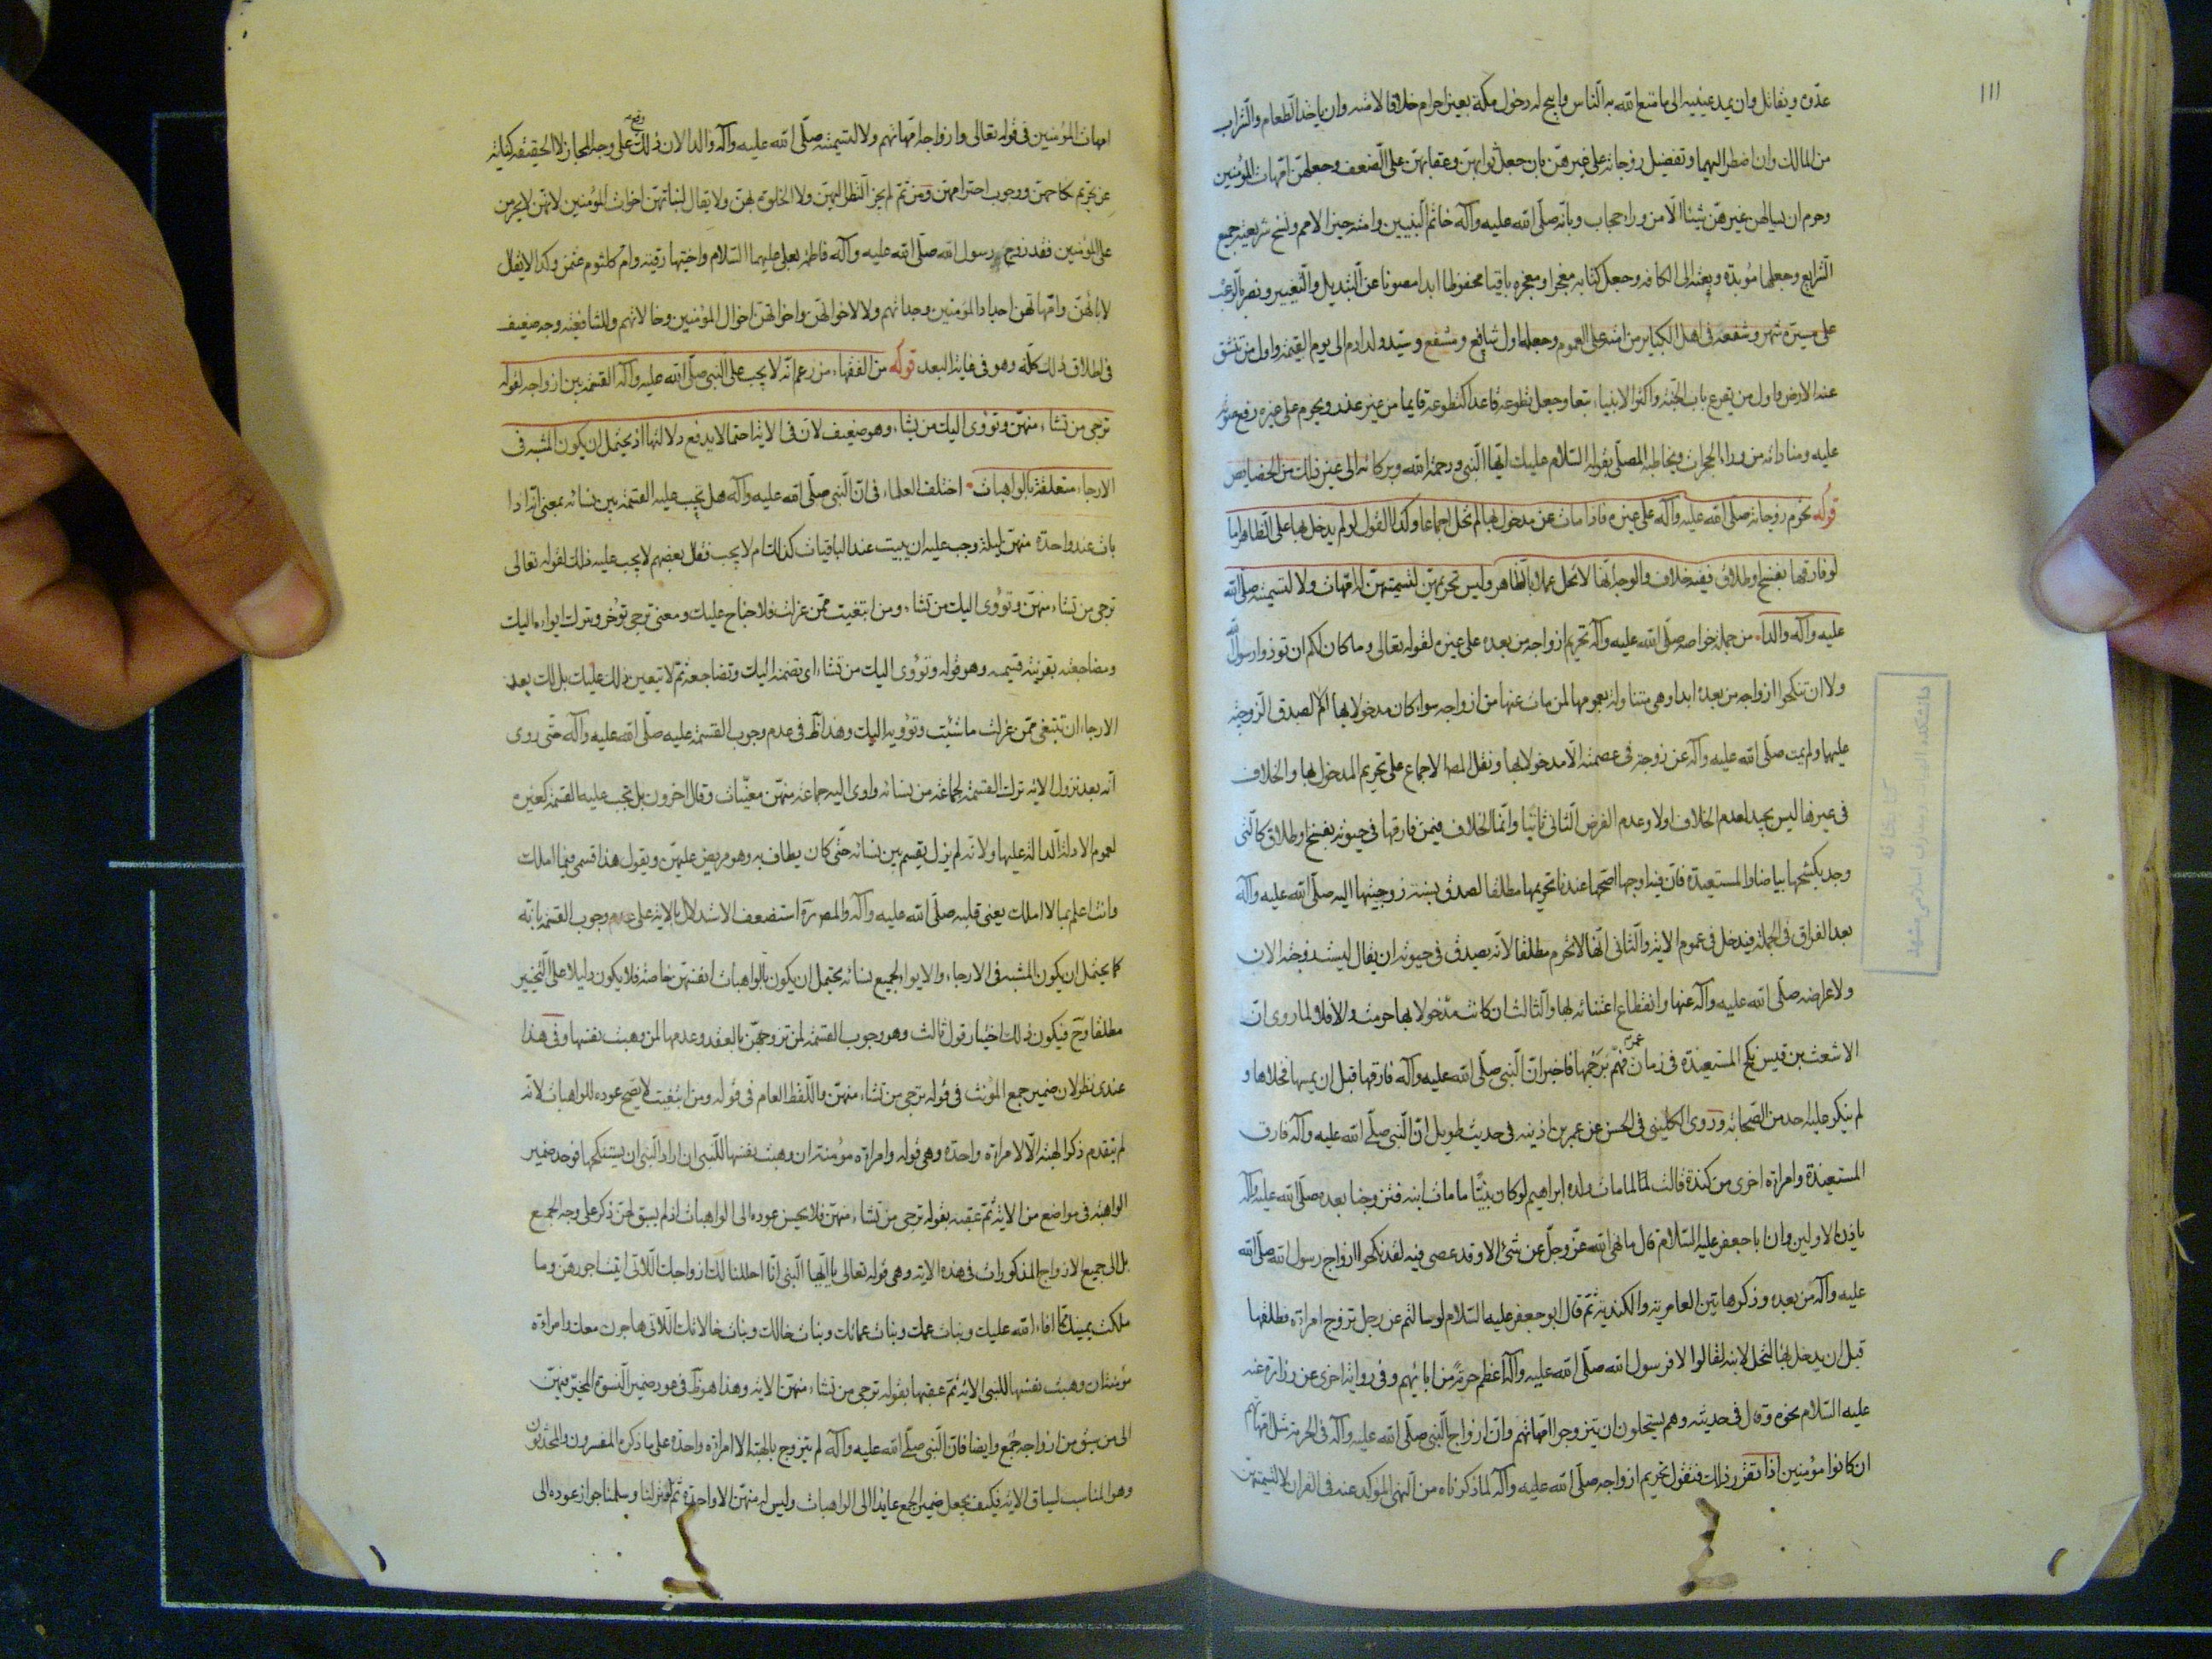 ١١١
عدوه ويقاتل وان يمد عينيه الى ما متع الله به الناس وابيح له دخول مكة بغير احرام خلافا لامته وان ياخذ الطعام والشراب
من المالك وان اضطر اليهما وتفضيل زوجاته على غيرهن بان جعل ثوابهن وعقابهن على الضعف وجعلهن امهات المؤمنين
وحرم ان يسالهن غيرهن شيئا الا من وراء حجاب وبانه صلى الله عليه وآله خاتم النبيين وامته خير الامم ونسخ شريعته جميع
الشرايع وجعلها مؤبدة وبعثه الى الكافة وجعل كتابه معجزا ومعجزه باقيا محفوظا ابدا مصونا عن التبديل والتغيير ونصر بالرعب
على مسيرة شهر وشفعه فى اهل الكبائر من امته على العموم وجعله اول شافع ومشفع وسيد ولد ادم الى يوم القيمة واول من تنشق
عنه الارض واول من يقرع باب الجنة واكثر الانبياء تبعا وجعل تطوعه قاعدا كتطوعه قايما من غير عذر ويحرم على غيره رفع صوته
عليه ومناداته من وراء الحجرات ويخاطبه المصلى بقوله السلام عليك ايها النبى ورحمة الله وبركاته الى غير ذلك من الخصايص
قوله تحرم زوجاته صلى الله عليه وآله على غيره فاذا مات عن مدخول بها لم تحل اجماعا وكذا القول لو لم يدخل بها على الظاهر اما
لو فارقها بفسخ او طلاق ففيه خلاف والوجه انها لا تحل عملا بالظاهر وليس تحريمهن لتسميتهن امهات ولا لتسميته صلى الله
عليه وآله والدا من جملة خواصه صلى الله عليه وآله تحريم ازواجه من بعده على غيره لقوله تعالى وما كان لكم ان تؤذوا رسول الله
ولا ان تنكحوا ازواجه من بعده ابدا وهى متناولة بعمومها لمن مات عنها من ازواجه سواء كان مدخولا بها ام لا لصدق الزوجية
عليها ولم يمت صلى الله عليه وآله عن زوجة فى عصمته الا مدخولا بها ونقل المصر الاجماع على تحريم المدخول بها والخلاف
فى غيرها ليس بجيد لعدم الخلاف اولا وعدم الفرض الثانى ثانيا وانما الخلاف فيمن فارقها فى حيوته بفسخ او طلاق كالتى
وجد بكشحها بياضا والمستعيذة فان فيه اوجها اصحها عندنا تحريمها مطلقا لصدق نسبة زوجيتها اليه صلى الله عليه وآله
بعد الفراق فى الجملة فيدخل فى عموم الاية والثانى انها لا تحرم مطلقا لانه يصدق فى حيوته ان يقال ليست زوجته الان
ولاعراضه صلى الله عليه وآله عنها وانقطاع اعتنائه بها والثالث ان كانت مدخولا بها حرمت والا فلا لما روى ان
الاشعث بن قيس نكح المستعيذة فى زمان عمر فهم برجمها فاخبر ان النبى صلى الله عليه وآله فارقها قبل ان يمسها فخلاها و
لم ينكر عليه احد من الصحابة وروى الكلينى فى الحسن عن عمر بن اذينة فى حديث طويل ان النبى صلى الله عليه وآله فارق
المستعيذة وامراة اخرى من كندة قالت لما مات ولده ابراهيم لو كان نبيا ما مات ابنه فتزوجتا بعده صلى الله عليه وآله
باذن الاولين وان ابا جعفر عليه السلام قال ما نهى الله عز وجل عن شئ الا وقد عصى فيه لقد نكحوا ازواج رسول الله صلى الله
عليه وآله من بعده وذكر هاتين العامرية والكندية ثم قال ابو جعفر عليه السلام لو سالتم عن رجل تزوج امراة فطلقها
قبل ان يدخل بها اتحل لابنه لقالوا لا فرسول الله صلى الله عليه وآله اعظم حرمة من ابائهم وفى رواية اخرى عن زرارة عنه
عليه السلام نحوه وقال فى حديثه وهم يستحلون ان يتزوجوا امهاتهم وان ازواج النبى صلى الله عليه وآله فى الحرمة مثل امهاتهم
ان كانوا مؤمنين اذا تقرر ذلك فنقول تحريم ازواجه صلى الله عليه وآله لما ذكرناه من النهى المؤكد عنه فى القران لا لتسميتهن
امهات المؤمنين فى قوله تعالى وازواجه امهاتهم ولا لتسميته صلى الله عليه وآله والدا لان ذلك وقع على وجه المجاز لا الحقيقة كناية
عن تحريم نكاحهن ووجوب احترامهن ومن ثم لم يجز النظر اليهن ولا الخلوة بهن ولا يقال لبناتهن اخوات المؤمنين لانهن لا يحرمن
على المؤمنين فقد زوج رسول الله صلى الله عليه وآله فاطمة بعلى عليهما السلام واختيها رقية وام كلثوم عثمن وكذا لا يقال
لابائهن وامهاتهن اجداد المؤمنين وجداتهم ولا لاخوانهن واخواتهن اخوال المؤمنين وخالاتهم وللشافعية وجه ضعيف
فى اطلاق ذلك كله وهو فى غاية البعد قوله من الفقهاء من زعم انه لا يجب على النبى صلى الله عليه وآله القسمة بين ازواجه لقوله
ترجى من تشاء منهن وتؤوى اليك من تشاء وهو ضعيف لان فى الاية احتمالا يدفع دلالتها اذ يحتمل ان يكون المشية فى
الارجاء متعلقة بالواهبات اختلف العلماء فى ان النبى صلى الله عليه وآله هل يجب عليه القسمة بين نسائه بمعنى انه اذا
بات عند واحدة منهن ليلة وجب عليه ان يبيت عند الباقيات كذلك ام لا يجب فقال بعضهم لا يجب عليه ذلك لقوله تعالى
ترجى من تشاء منهن وتؤوى اليك من تشاء ومن ابتغيت ممن عزلت فلا جناح عليك ومعنى ترجى تؤخر وتترك ايواءه اليك
ومضاجعته بقرينة قسيمه وهو قوله وتؤوى اليك من تشاء اى تضمه اليك وتضاجعه ثم لا يتعين ذلك عليك بل لك بعد
الارجاء ان تبتغى ممن عزلت ما شئت وتؤويه اليك وهذا ظ فى عدم وجوب القسمة عليه صلى الله عليه وآله حتى روى
انه بعد نزول الاية ترك القسمة لجماعة من نسائه واوى اليه جماعة منهن معينات وقال اخرون بل تجب عليه القسمة كغيره
لعموم الادلة الدالة عليها ولانه لم يزل يقسم بين نسائه حتى كان يطاف به وهو مريض عليهن ويقول هذا قسمى فيما املك
وانت اعلم بما لا املك يعنى قلبه صلى الله عليه وآله والمصره استضعف الاستدلال بالاية على عدم وجوب القسمة بانه
كما يحتمل ان يكون المشية فى الارجاء والايواء لجميع نسائه يحتمل ان يكون بالواهبات انفسهن خاصة فلا يكون دليلا على التخيير
مطلقا وح فيكون ذلك اختيار قول ثالث وهو وجوب القسمة لمن تزوجهن بالعقد وعدمها لمن وهبت نفسها وفى هذا
عندى نظر لان ضمير جمع المؤنث فى قوله ترجى من تشاء منهن واللفظ العام فى قوله ومن ابتغيت لا يصح عوده للواهبات لانه
لم يتقدم ذكر الهبة الا لامراة واحدة وهى قوله وامراة مؤمنة ان وهبت نفسها للنبى ان اراد النبى ان يستنكحها فوحد ضمير
الواهبة فى مواضع من الاية ثم عقبه بقوله ترجى من تشاء منهن فلا يحسن عوده الى الواهبات اذ لم يسبق لهن ذكر على وجه الجمع
بل الى جميع الازواج المذكورات فى هذه الاية وهى قوله تعالى يا ايها النبى انا احللنا لك ازواجك اللاتى اتيت اجورهن وما
ملكت يمينك مما افاء الله عليك وبنات عمك وبنات عماتك وبنات خالك وبنات خالاتك اللاتى هاجرن معك وامراة
مؤمنة ان وهبت نفسها للنبى الاية ثم عقبها بقوله ترجى من تشاء منهن الاية وهذا هو ظ فى عود ضمير النسوة المخير فيهن
الى من سبق من ازواجه جمع وايضا فان النبى صلى الله عليه وآله لم يتزوج بالهبة الا امراة واحدة على ما ذكره المفسرون والمحدثون
وهو المناسب لسياق الاية فكيف يجعل ضمير الجمع عايدا الى الواهبات وليس له منهن الا واحدة ثم لو تنزلنا وسلمنا جواز عوده الى